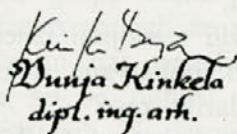 Dunja Kinkela
dipl. ing. arh.